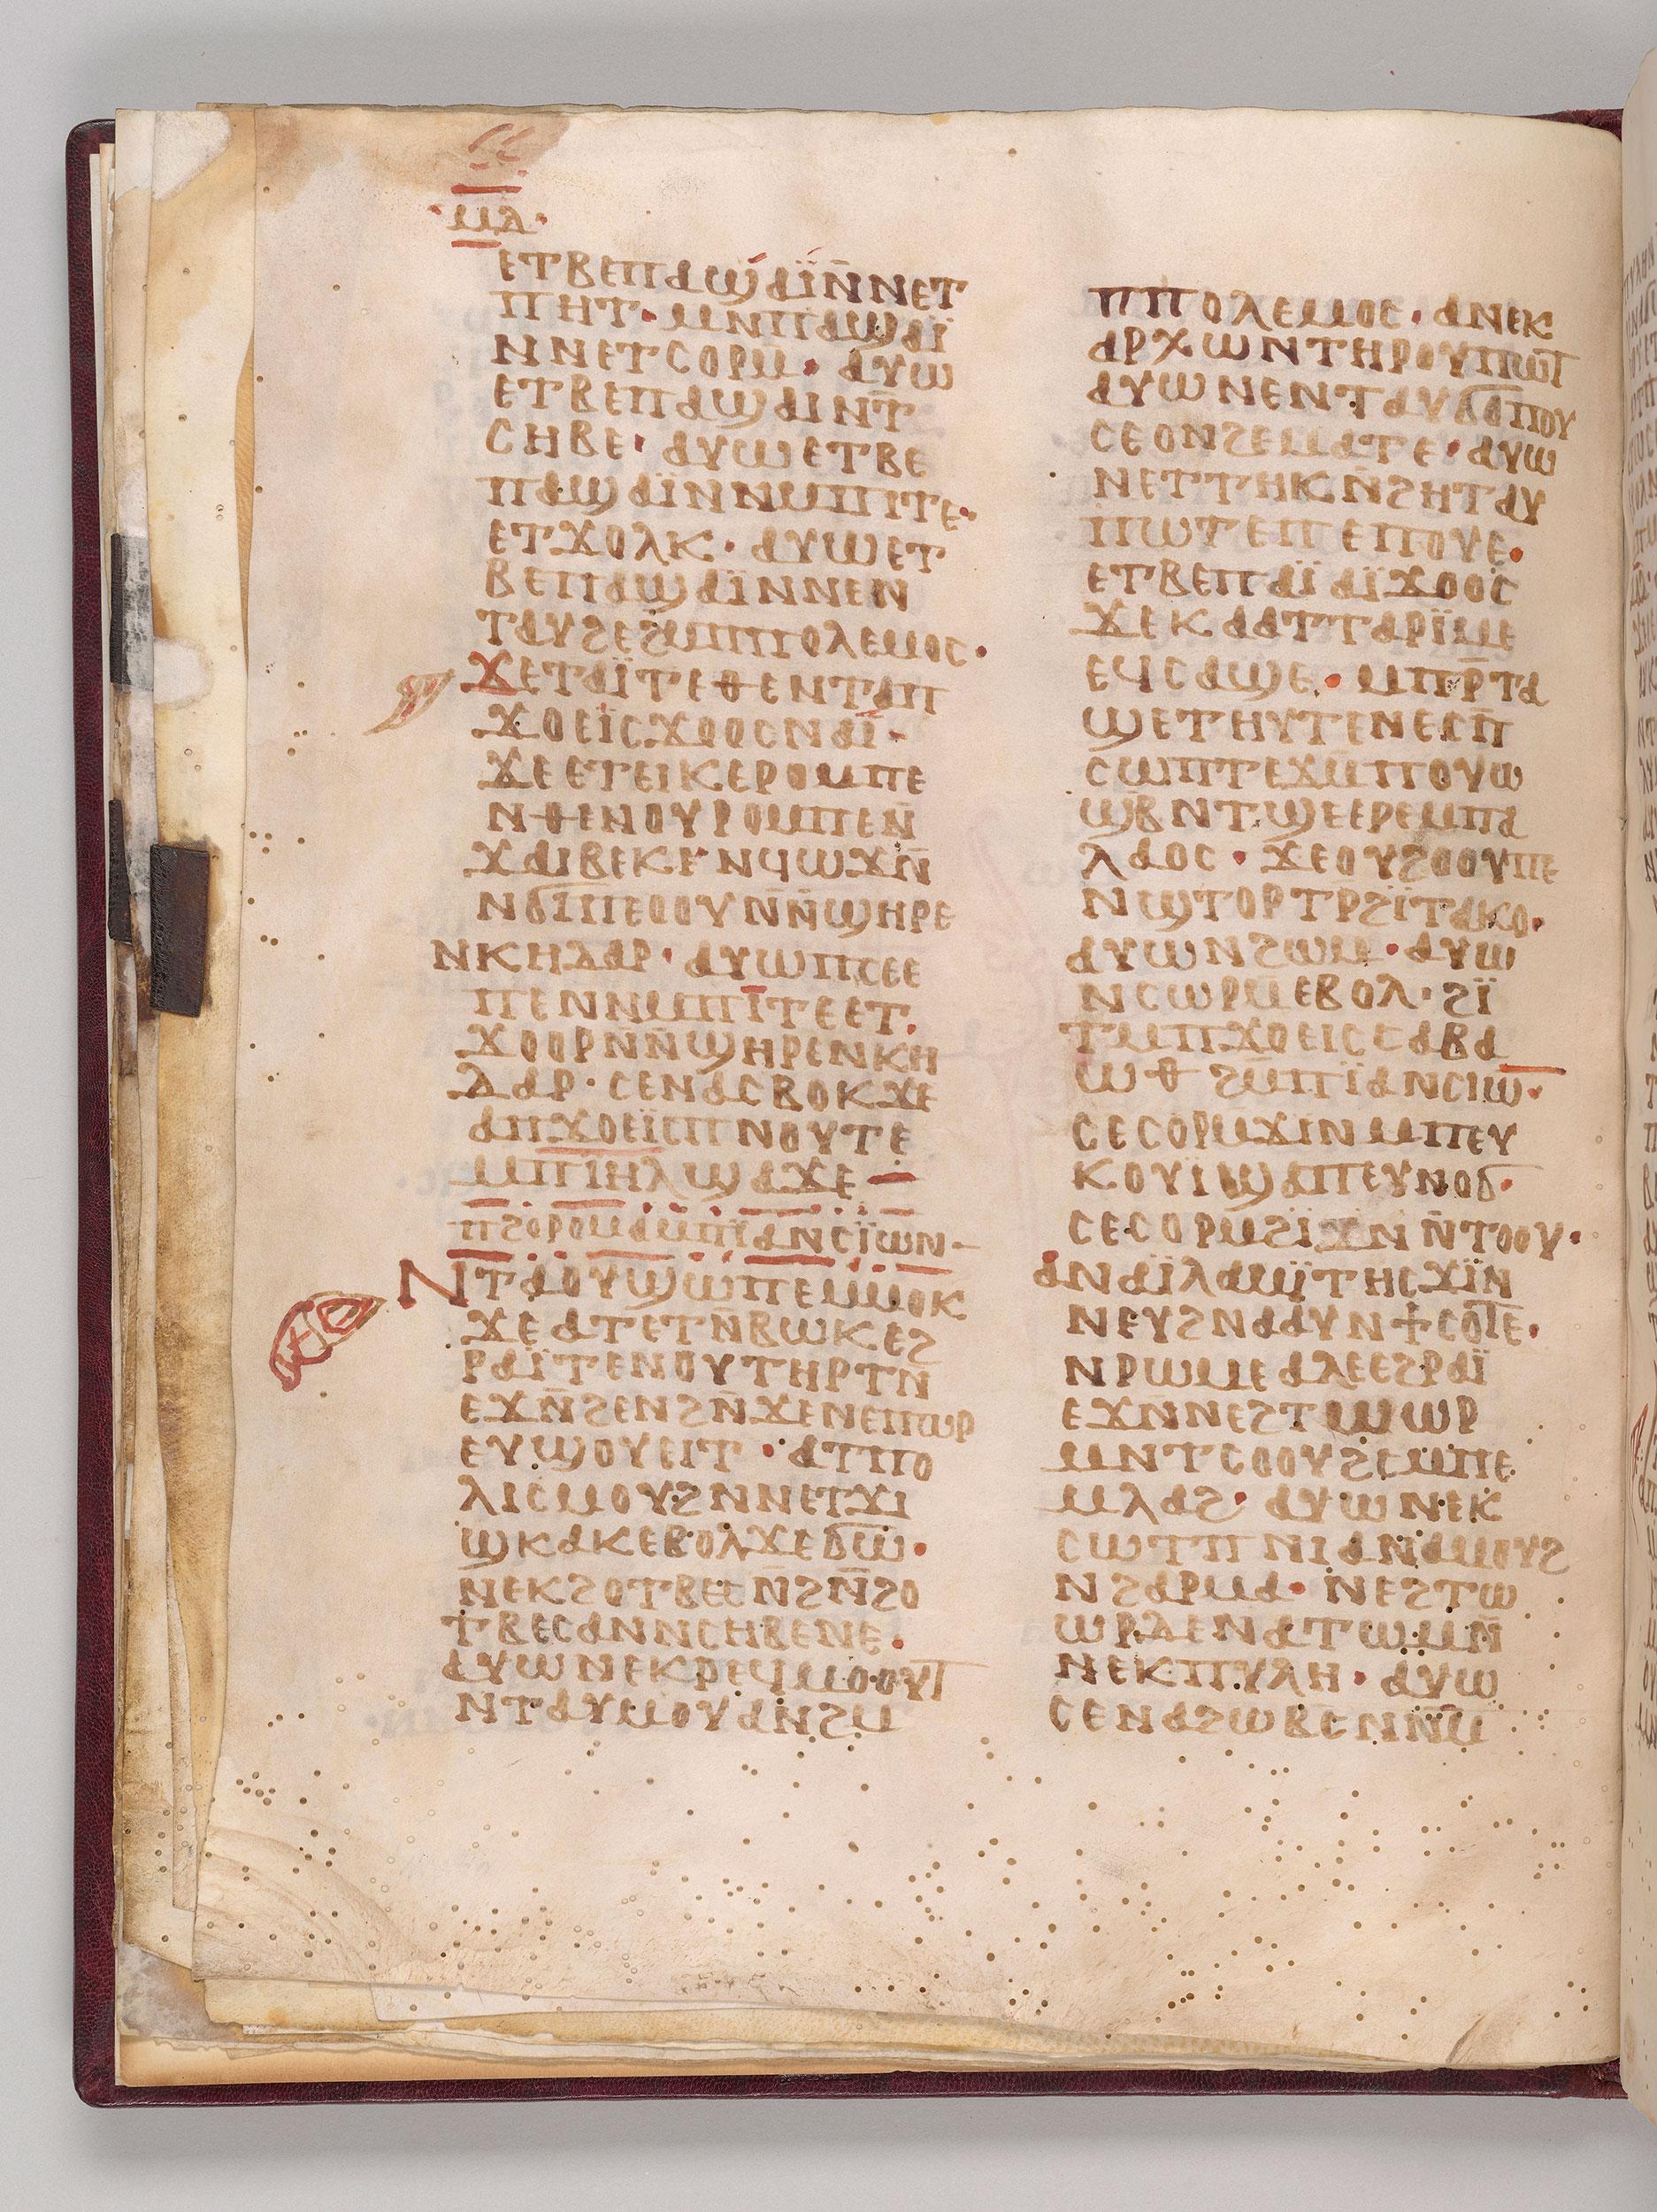 ⲙⲁ
ⲉⲧⲃⲉⲡⲁϣⲁⲓ̈ⲛ̄ⲛⲉⲧ
ⲡⲏⲧ· ⲙⲛⲡⲁϣⲁⲓ̈
ⲛⲛⲉⲧⲥⲟⲣⲙ· ⲁⲩⲱ
ⲉⲧⲃⲉⲡⲁϣⲁⲓⲛⲧ̄
ⲥⲏⲃⲉ· ⲁⲩⲱⲉⲧⲃⲉ
ⲡⲁϣⲁⲓ̈ⲛⲛⲙⲡⲓⲧⲉ·
ⲉⲧϫⲟⲗⲕ· ⲁⲩⲱⲉⲧ
ⲃⲉⲡⲁϣⲁⲓ̈ⲛⲛⲉⲛ
ⲧⲁⲩϩⲉϩⲙⲡⲡⲟⲗⲉⲙⲟⲥ·
ϫⲉⲧⲁⲓ̈ⲧⲉⲑⲉⲛⲧⲁⲡ
ϫⲟⲉⲓⲥϫⲟⲟⲥⲛⲁⲓ̈·
ϫⲉⲉⲧⲉⲓⲕⲉⲣⲟⲙⲡⲉ
ⲛⲑⲉⲛⲟⲩⲣⲟⲙⲡⲉⲛ̄
ϫⲁⲓⲃⲉⲕⲉ·ⲛϥⲱϫⲛ̄
ⲛϭⲓⲡⲉⲟⲟⲩⲛ̄ⲛ̄ϣⲏⲣⲉ
ⲛⲕⲏⲇⲁⲣ· ⲁⲩⲱⲡⲥⲉⲉ
ⲡⲉⲛⲛⲙⲡⲓⲧⲉⲉⲧ·
ϫⲟⲟⲣⲛ̄ⲛ̄ϣⲏⲣⲉⲛⲕⲏ
ⲇⲁⲣ· ⲥⲉⲛⲁⲥⲃⲟⲕϫⲉ
ⲁⲡϫⲟⲉⲓ̈ⲥⲡⲛⲟⲩⲧⲉ
ⲙⲡⲓⲏⲗϣⲁϫⲉ—
ⲡϩⲟⲣⲟⲙⲁⲙ̄ⲡⲓ̈ⲁⲛⲥⲓ̈ⲱⲛ–
ⲛⲧⲁⲟⲩϣⲱⲡⲉⲙⲙⲟⲕ
ϫⲉⲁⲧⲉⲧⲛ̄ⲃⲱⲕⲉϩ
ⲣⲁⲓ̈ⲧⲉⲛⲟⲩⲧⲏⲣⲧⲛ̄
ⲉϫⲛ̄ϩⲉⲛϩⲛ̄ϫⲉⲛⲉⲡⲱⲣ
ⲉⲩϣⲟⲩⲉⲓⲧ· ⲁⲧⲡⲟ
ⲗⲓⲥⲙⲟⲩϩⲛⲛⲉⲧϫⲓ
ϣⲕⲁⲕⲉⲃⲟⲗϫⲉϭⲱ̄·
ⲛⲉⲕϩⲟⲧⲃⲉⲥⲛϩⲛ̄ϩⲟ
ⲧⲃⲉⲥⲁⲛⲛⲥⲏⲃⲉⲛⲉ·
ⲁⲩⲱⲛⲉⲕⲣⲉϥⲙⲟⲟⲩⲧ
ⲛⲧⲁⲩⲙⲟⲩⲁⲛϩⲙ
ⲡⲡⲟⲗⲉⲙⲟⲥ· ⲁⲛⲉⲕ
ⲁⲣⲭⲱⲛⲧⲏⲣⲟⲩⲡⲱⲧ
ⲁⲩⲱⲛⲉⲛⲧⲁⲩϭⲟⲡⲟⲩ
ⲥⲉⲟⲛϩⲉⲙⲁⲧⲉ· ⲁⲩⲱ
ⲛⲉⲧⲧⲏⲕⲛ̄ϩⲏⲧⲁⲩ
ⲡⲱⲧⲉⲡⲉⲡⲟⲩⲉ·
ⲉⲧⲃⲉⲡⲁⲓ̈ⲁⲓ̈ϫⲟⲟⲥ
ϫⲉⲕⲁⲁⲧⲧⲁⲣⲓ̈ⲙⲉ
ⲉϥⲥⲁϣⲉ· ⲙⲡⲣ̄ⲧⲁ
ϣⲉⲧⲏⲩⲧⲉⲛⲉⲥⲡ̄
ⲥⲱⲡⲧⲉϫⲙ̄ⲡⲟⲩⲱ
ϣ̄ⲃⲛⲧϣⲉⲉⲣⲉⲙⲡⲁ
ⲗⲁⲟⲥ· ϫⲉⲟⲩϩⲟⲟⲩⲡⲉ
ⲛϣⲧⲟⲣⲧⲣϩⲓ̈ⲧⲁⲕⲟ·
ⲁⲩⲱⲛϩⲱⲙ· ⲁⲩⲱ
ⲛⲥⲱⲣⲙⲉⲃⲟⲗ· ϩⲓ̈
ⲧⲙⲡϫⲟⲉⲓⲥⲥⲁⲃⲁ
ⲱⲑ ϩⲙ̄ⲡⲓ̈ⲁⲛⲥⲓⲱ̄·
ⲥⲉⲥⲟⲣⲙϫⲓⲛⲙⲡⲉⲩ
ⲕⲟⲩⲓϣⲁⲡⲉⲩⲛⲟϭ·
ⲥⲉⲥⲟⲣⲙϩⲓϫⲛⲛ̄ⲧⲟⲟⲩ·
ⲁⲛⲁⲓ̈ⲗⲁⲙⲓ̈ⲧⲏⲥϫⲓ̈ⲛ
ⲛⲉⲩϩⲛⲁⲁⲩⲛϯⲥⲟⲧⲉ·
ⲛⲣⲱⲙⲉⲁⲗⲉⲉϩⲣⲁⲓ̈
ⲉϫⲛ̄ⲛⲉϩⲧⲱⲱⲣ
ⲙⲛⲧⲥⲟⲟⲩϩⲉⲙⲡⲉ
ⲙⲗⲁϩ· ⲁⲩⲱⲛⲉⲕ
ⲥⲱⲧⲡⲛⲓⲁⲛⲁⲙⲟⲩϩ
ⲛϩⲁⲣⲙⲁ· ⲛⲉϩⲧⲱ
ⲱⲣⲇⲉⲛⲁⲧⲱⲙⲛ̄
ⲛⲉⲕⲡⲩⲗⲏ· ⲁⲩⲱ
ⲥⲉⲛⲁϩⲱⲃⲥⲛ̄ⲛⲙ̄